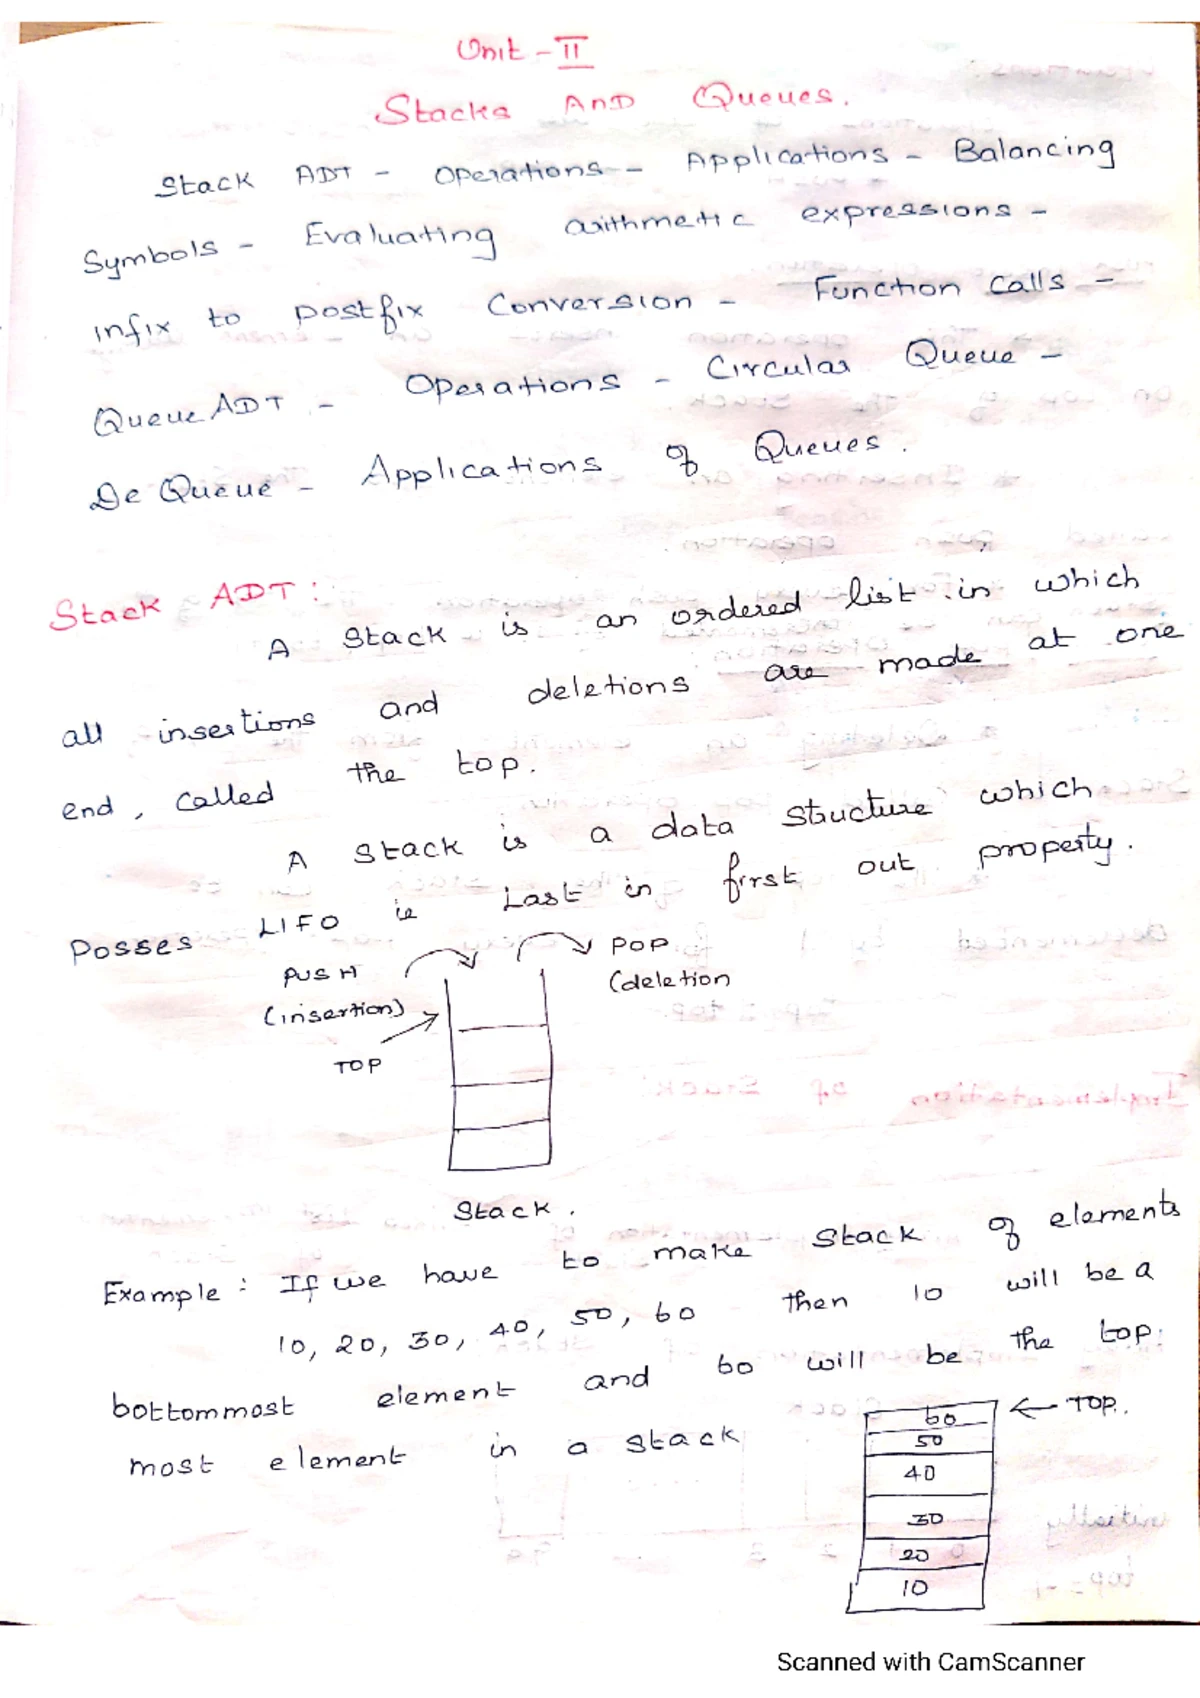 Unit - II
Stacks AND Queues.
Stack ADT - Operations - Applications - Balancing
Symbols - Evaluating arithmetic expressions -
infix to postfix Conversion - Function Calls -
Queue ADT - Operations - Circular Queue -
De Queue - Applications of Queues.
Stack ADT :
A Stack is an ordered list in which
all insertions and deletions are made at one
end, called the top.
A Stack is a data structure which
Posses LIFO ie Last in first out property.
PUSH
(insertion)
POP
(deletion
TOP
Stack.
Example : If we have to make stack of elements
10, 20, 30, 40, 50, 60 then 10 will be a
bottommost element and 60 will be the top
most element in a stack
60 ← TOP.
50
40
30
20
10
Scanned with CamScanner